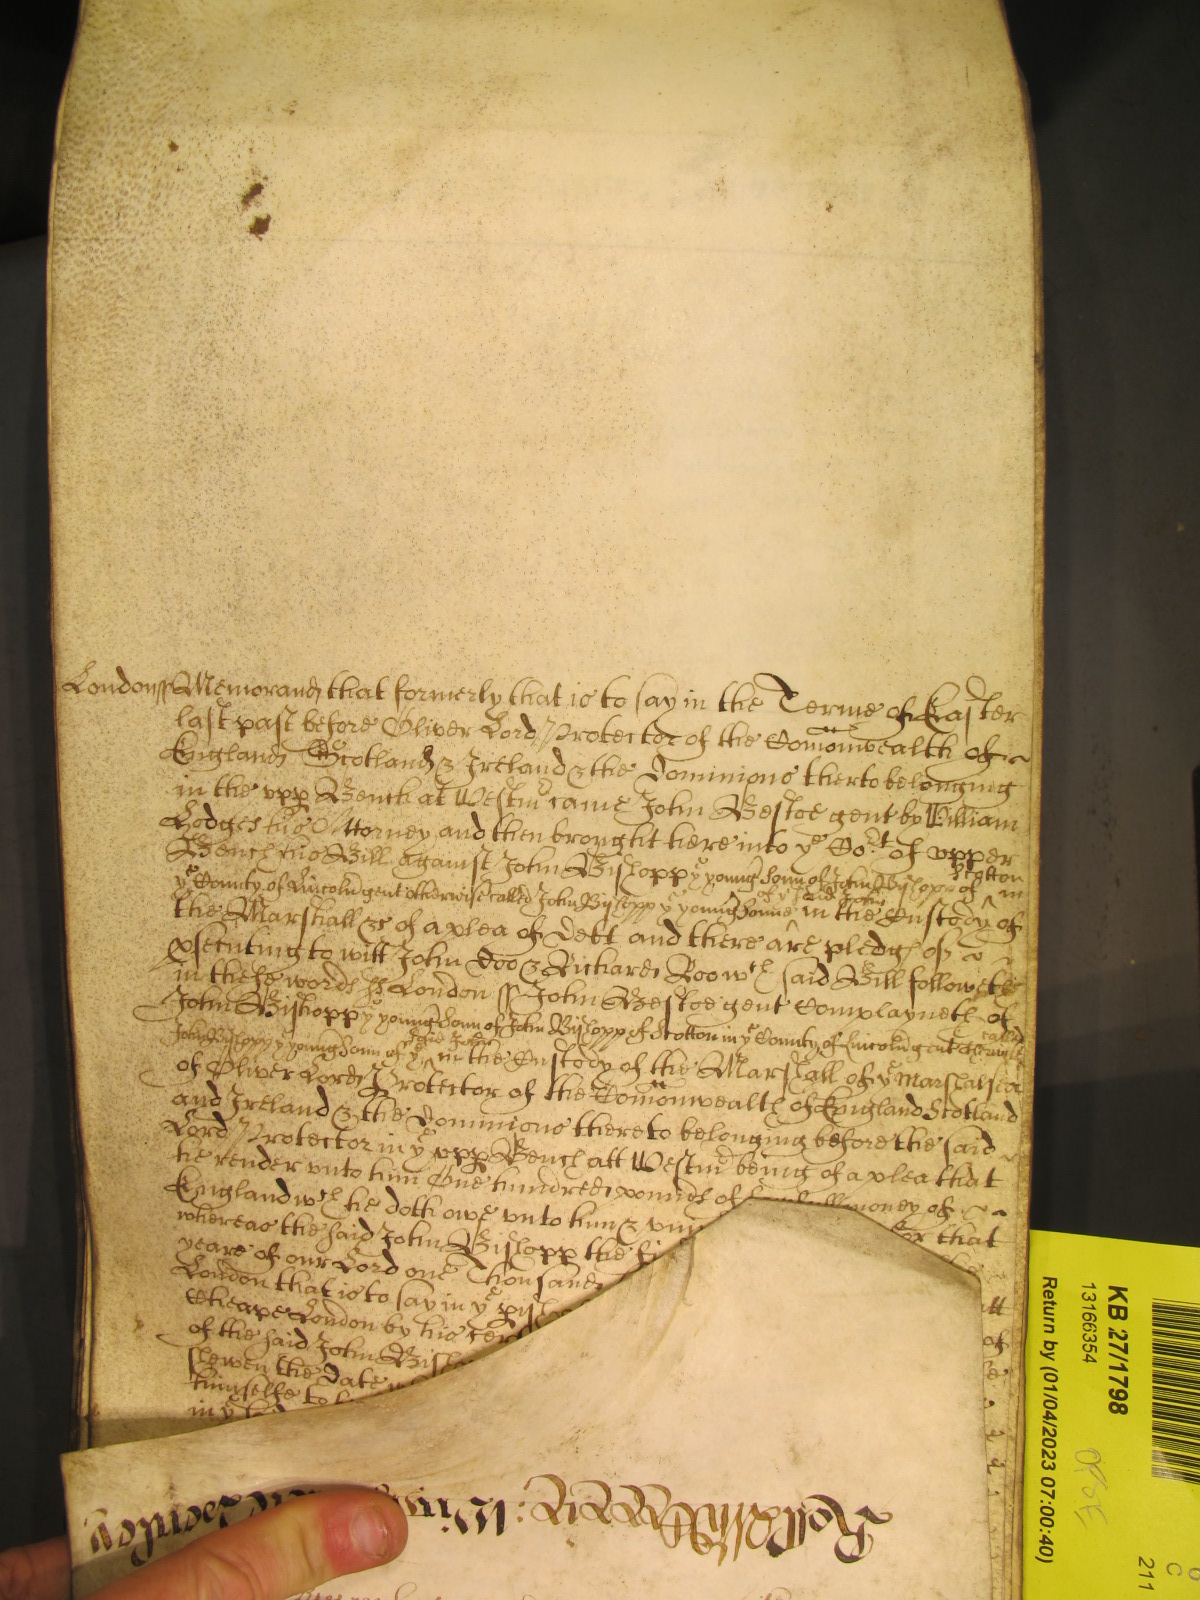 London ss Memorand that formerly that is to say in the Terme of Easter
last past before Oliver Lord Protector of the Comonwealth of
England Scotland & Ireland & the Dominions therto belonging
in the upp Bench at Westm came John Besloe gent by William
Hodges his Attorney and then brought here into ye Cort of upper
Bench his Bill against John Bishopp ye young Sonn of John Bishopp of Scotton in
ye County of Lincoln gent otherwise called John Bishopp ye young Sonne of ye said John in the Custody of
the Marshall &c of a plea of Debt and there are pledg of
psecuting to witt John Doo & Richard Roo wch said Bill followeth
in these words ss London ss John Besloe gent Complayneth of
John Bishopp ye young Sonn of John Bishopp of Scotton in ye County of Lincoln gent otherwise called
John Bishopp ye young Sonn of ye said John in the Custody of the Marshall of ye Marshalsea
of Oliver Lord Protector of the Comonwealth of England Scotland
and Ireland & the Dominions thereto belonging before the said
Lord Protector in ye upp Bench att Westm being of a plea that
he render unto him One hundred pounds of money of
England wch he doth owe unto him & that
whereas the said John Bishopp the
yeare of our Lord one Thousand
London that is to say in ye
Cheape London by his
of the said John
shewen the Date
himselfe to
in ye
KB 27/1798
13166354
Return by (01/04/2023 07:00:40)
C
211